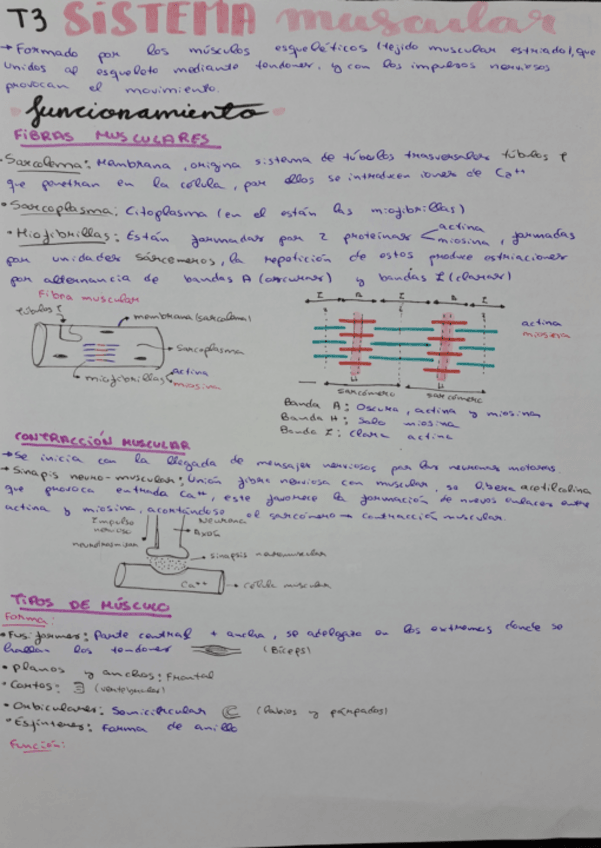 T3 SISTEMA muscular
→ Formado por los músculos esqueléticos (tejido muscular estriado), que
unidos al esqueleto mediante tendones, y con los impulsos nerviosos
provocan el movimiento.
funcionamiento
FIBRAS MUSCULARES
• Sarcolema: Membrana, origina sistema de túbulos trasversales túbulos T
que penetran en la célula, por ellos se introducen iones de Ca++
• Sarcoplasma: Citoplasma (en el están las miofibrillas)
• Miofibrillas: Están formadas por 2 proteínas actina
miosina, formadas
por unidades sarcómeros, la repetición de estos produce estriaciones
por alternancia de bandas A (oscuras) y bandas I (claras)
Fibra muscular
túbulos T
membrana (sarcolema)
sarcoplasma
miofibrillas
Actina
miosina
I A I A I
actina
miosina
H H
sarcómero sarcómero
Banda A: Oscura, actina y miosina
Banda H: Solo miosina
Banda I: clara actina
CONTRACCIÓN MUSCULAR
→ Se inicia con la llegada de mensajes nerviosos por las neuronas motoras.
• Sinapsis neuro-muscular: Unión fibra nerviosa con muscular, se libera acetilcolina
que provoca entrada Ca++, este favorece la formación de nuevos enlaces entre
actina y miosina, acortándose el sarcómero → contracción muscular.
Impulso
nervioso
Neurona
Axón
neurotransmisor
sinapsis neuromuscular
Ca++
célula muscular
TIPOS DE MÚSCULO
Forma:
• Fusiformes: Parte central + ancha, se adelgaza en los extremos donde se
hallan los tendones (Bíceps)
• Planos y anchos: Frontal
• Cortos: (vertebrales)
• Orbiculares: Semicircular (labios y párpados)
• Esfínteres: Forma de anillo
Función: